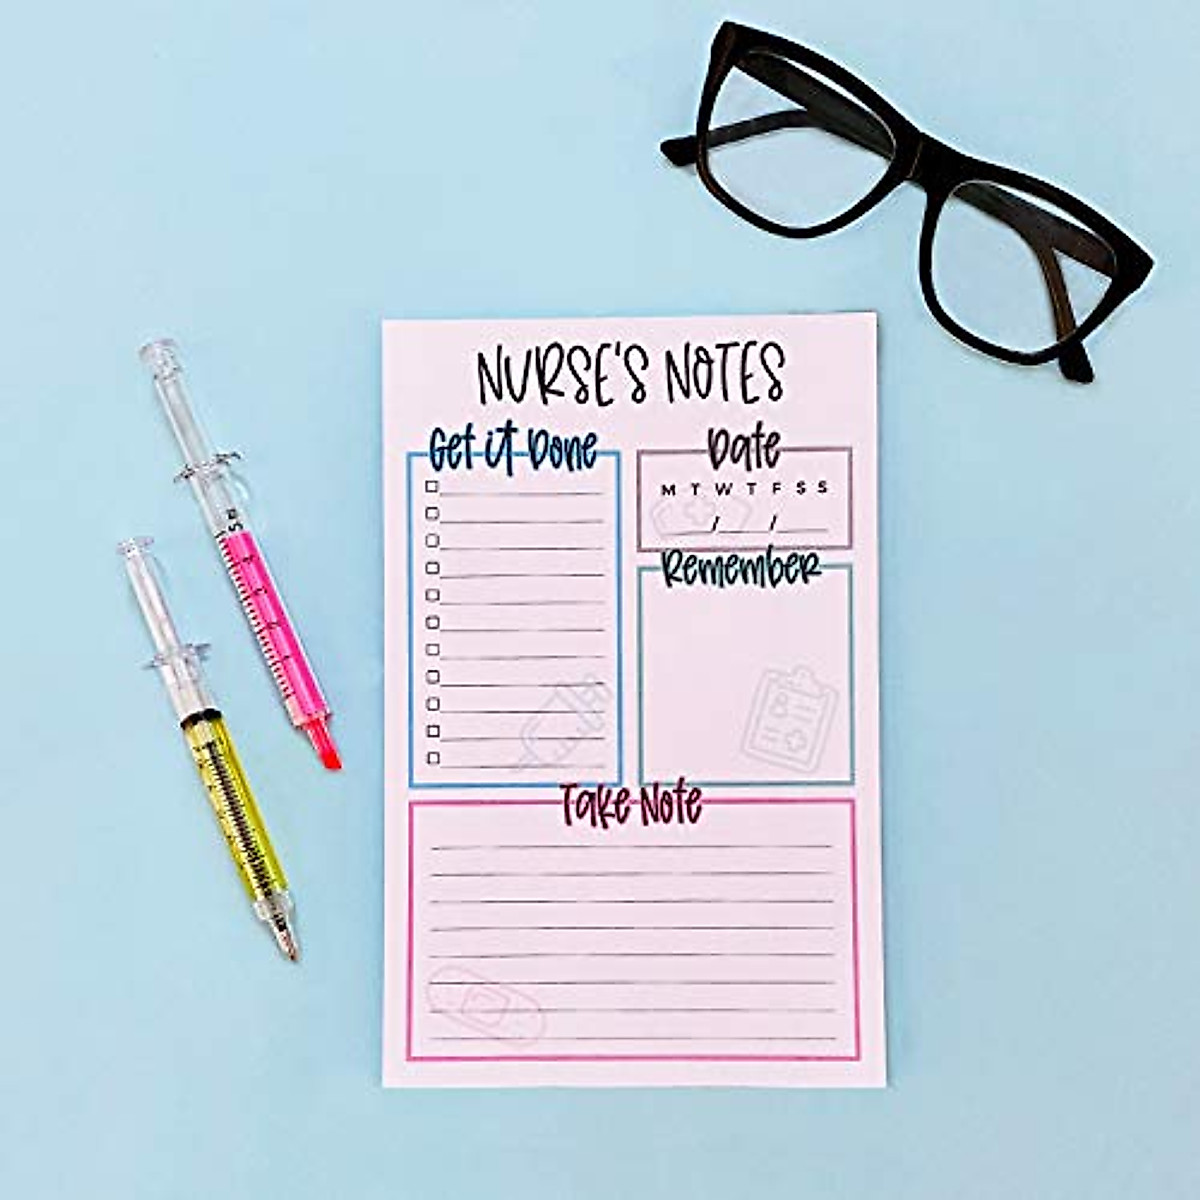 NURSE'S NOTES
Get it Done
Date
M T W T F S S
/ /
Remember
Take Note